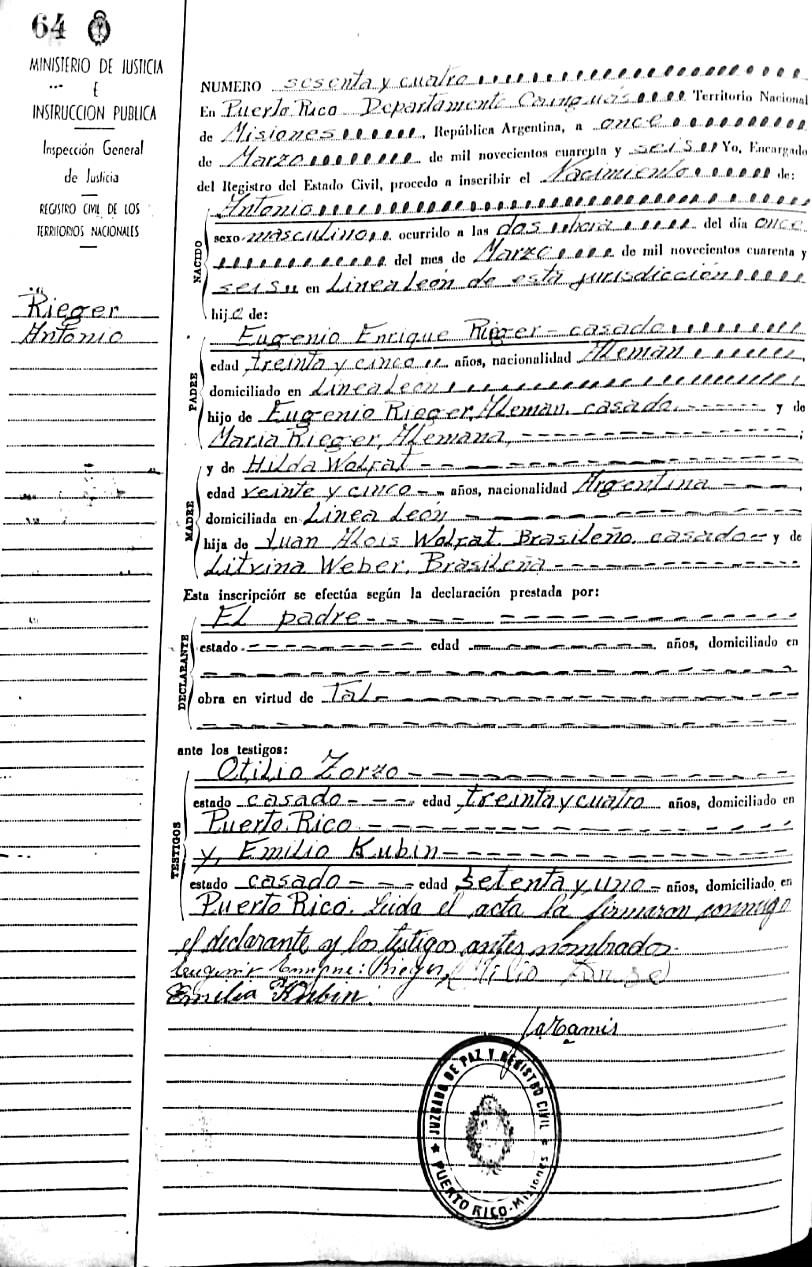 64
MINISTERIO DE JUSTICIA
E
INSTRUCCION PUBLICA
Inspección General
de Justicia
REGISTRO CIVIL DE LOS
TERRITORIOS NACIONALES
Rieger
Antonio
NUMERO sesenta y cuatro
En Puerto Rico Departamento Cainguás Territorio Nacional
de Misiones, República Argentina, a once
de Marzo de mil novecientos cuarenta y seis Yo, Encargado
del Registro del Estado Civil, procedo a inscribir el Nacimiento de:
NACIDO
Antonio
sexo masculino ocurrido a las dos hora del día once
del mes de Marzo de mil novecientos cuarenta y
seis en Linea León de esta jurisdicción
hijo de:
PADRE
Eugenio Enrique Rieger - casado
edad treinta y cinco años, nacionalidad Alemán
domiciliado en Linea Leon
hijo de Eugenio Rieger, Aleman. casado. y de
Maria Rieger, Alemana, ;
MADRE
y de Hilda Wolfat
edad veinte y cinco años, nacionalidad Argentina
domiciliada en Linea León
hija de Juan Alois Wolfat. Brasileño. casado y de
Litvina Weber. Brasileña
Esta inscripción se efectúa según la declaración prestada por:
DECLARANTE
El padre
estado edad años, domiciliado en
obra en virtud de Tal
ante los testigos:
TESTIGOS
Otilio Zorzo
estado casado edad treinta y cuatro años, domiciliado en
Puerto Rico
y, Emilio Kubin
estado casado edad setenta y uno años, domiciliado en
Puerto Rico. Leida el acta la firmaron conmigo
el declarante y los testigos antes nombrados.
Emilio Kubin.
JUZGADO DE PAZ Y REGISTRO CIVIL
PUERTO RICO - Misiones